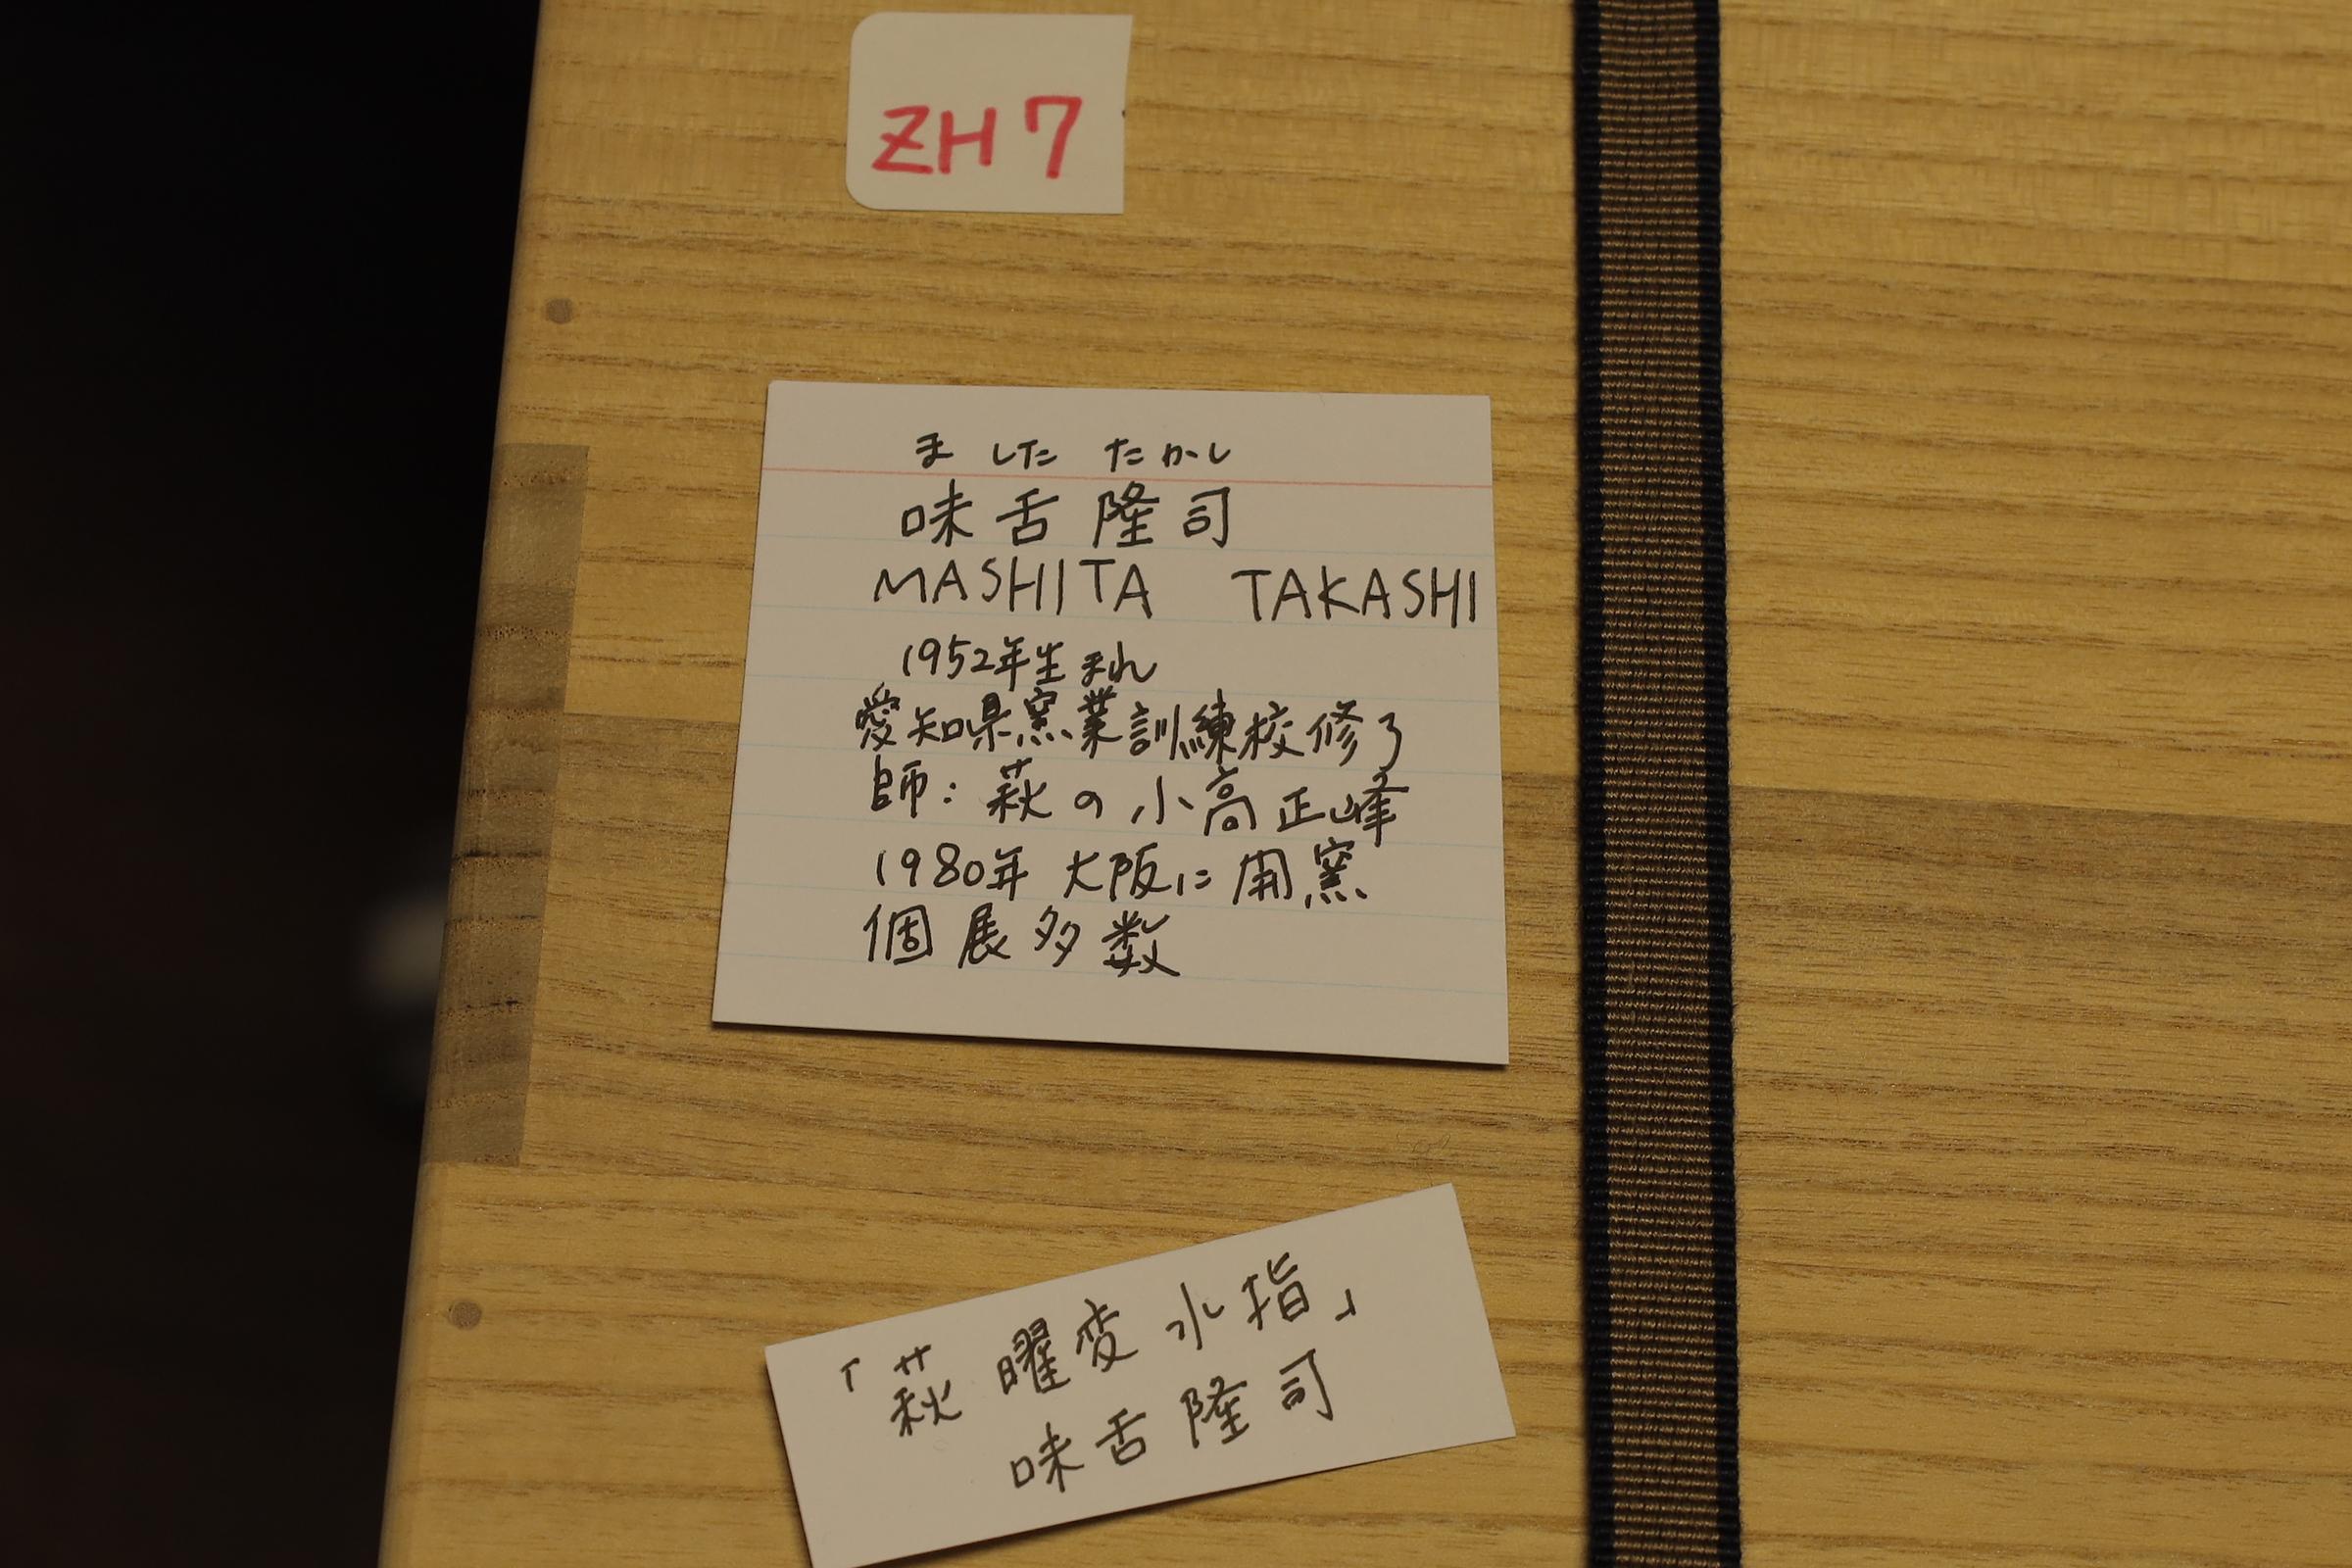 ZH7
ました たかし
味舌隆司
MASHITA TAKASHI
1952年生まれ
愛知県窯業訓練校修了
師:萩の小高正峰
1980年 大阪に開窯
個展多数
「萩 曜変水指」
味舌隆司